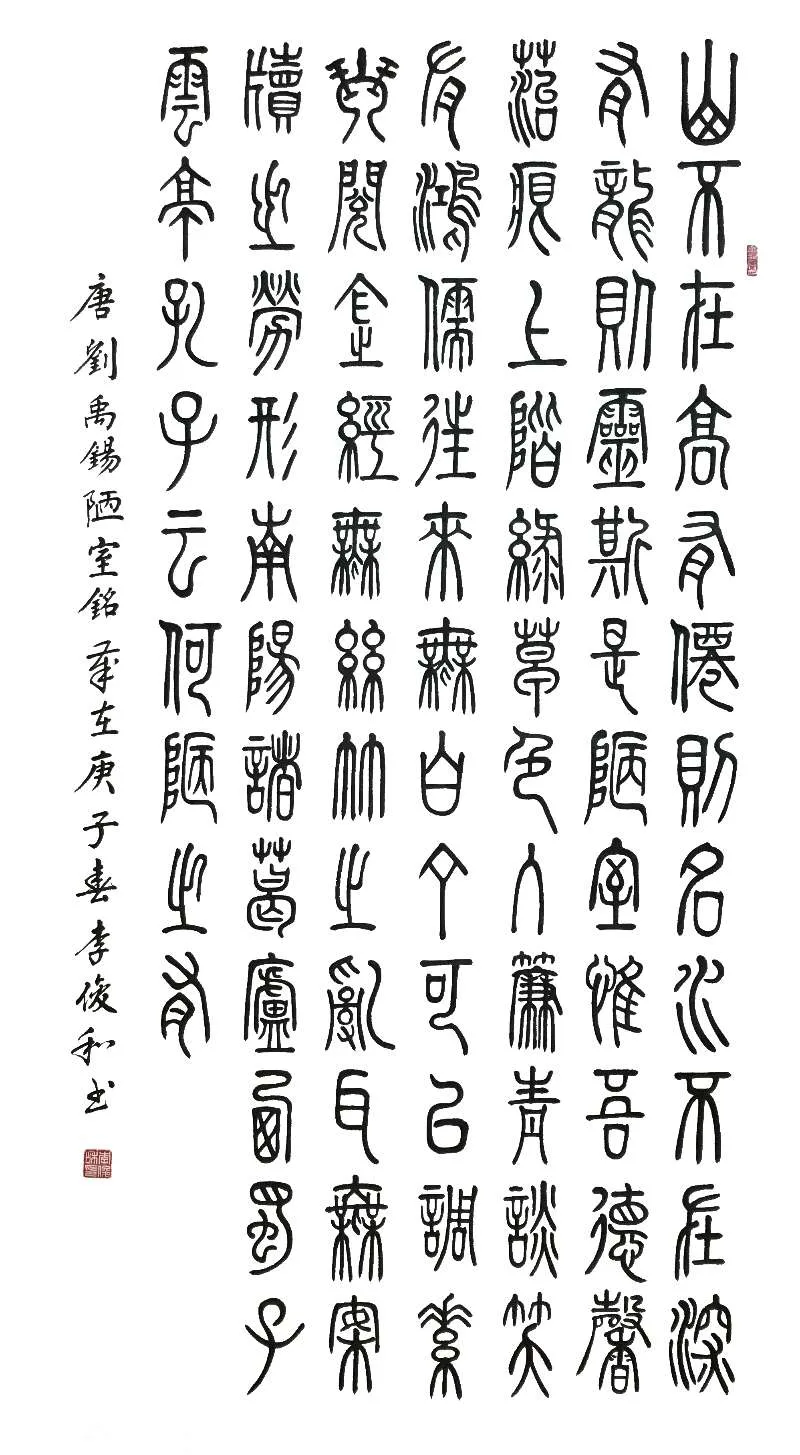 山不在高有僊則名水不在深
有龍則靈斯是陋室惟吾德馨
菭痕上階綠草色入簾青談笑
有鴻儒往來無白丁可以調素
琴閱金經無絲竹之亂耳無案
牘之勞形南陽諸葛廬西蜀子
雲亭孔子云何陋之有
唐劉禹錫陋室銘歲在庚子春李俊和书